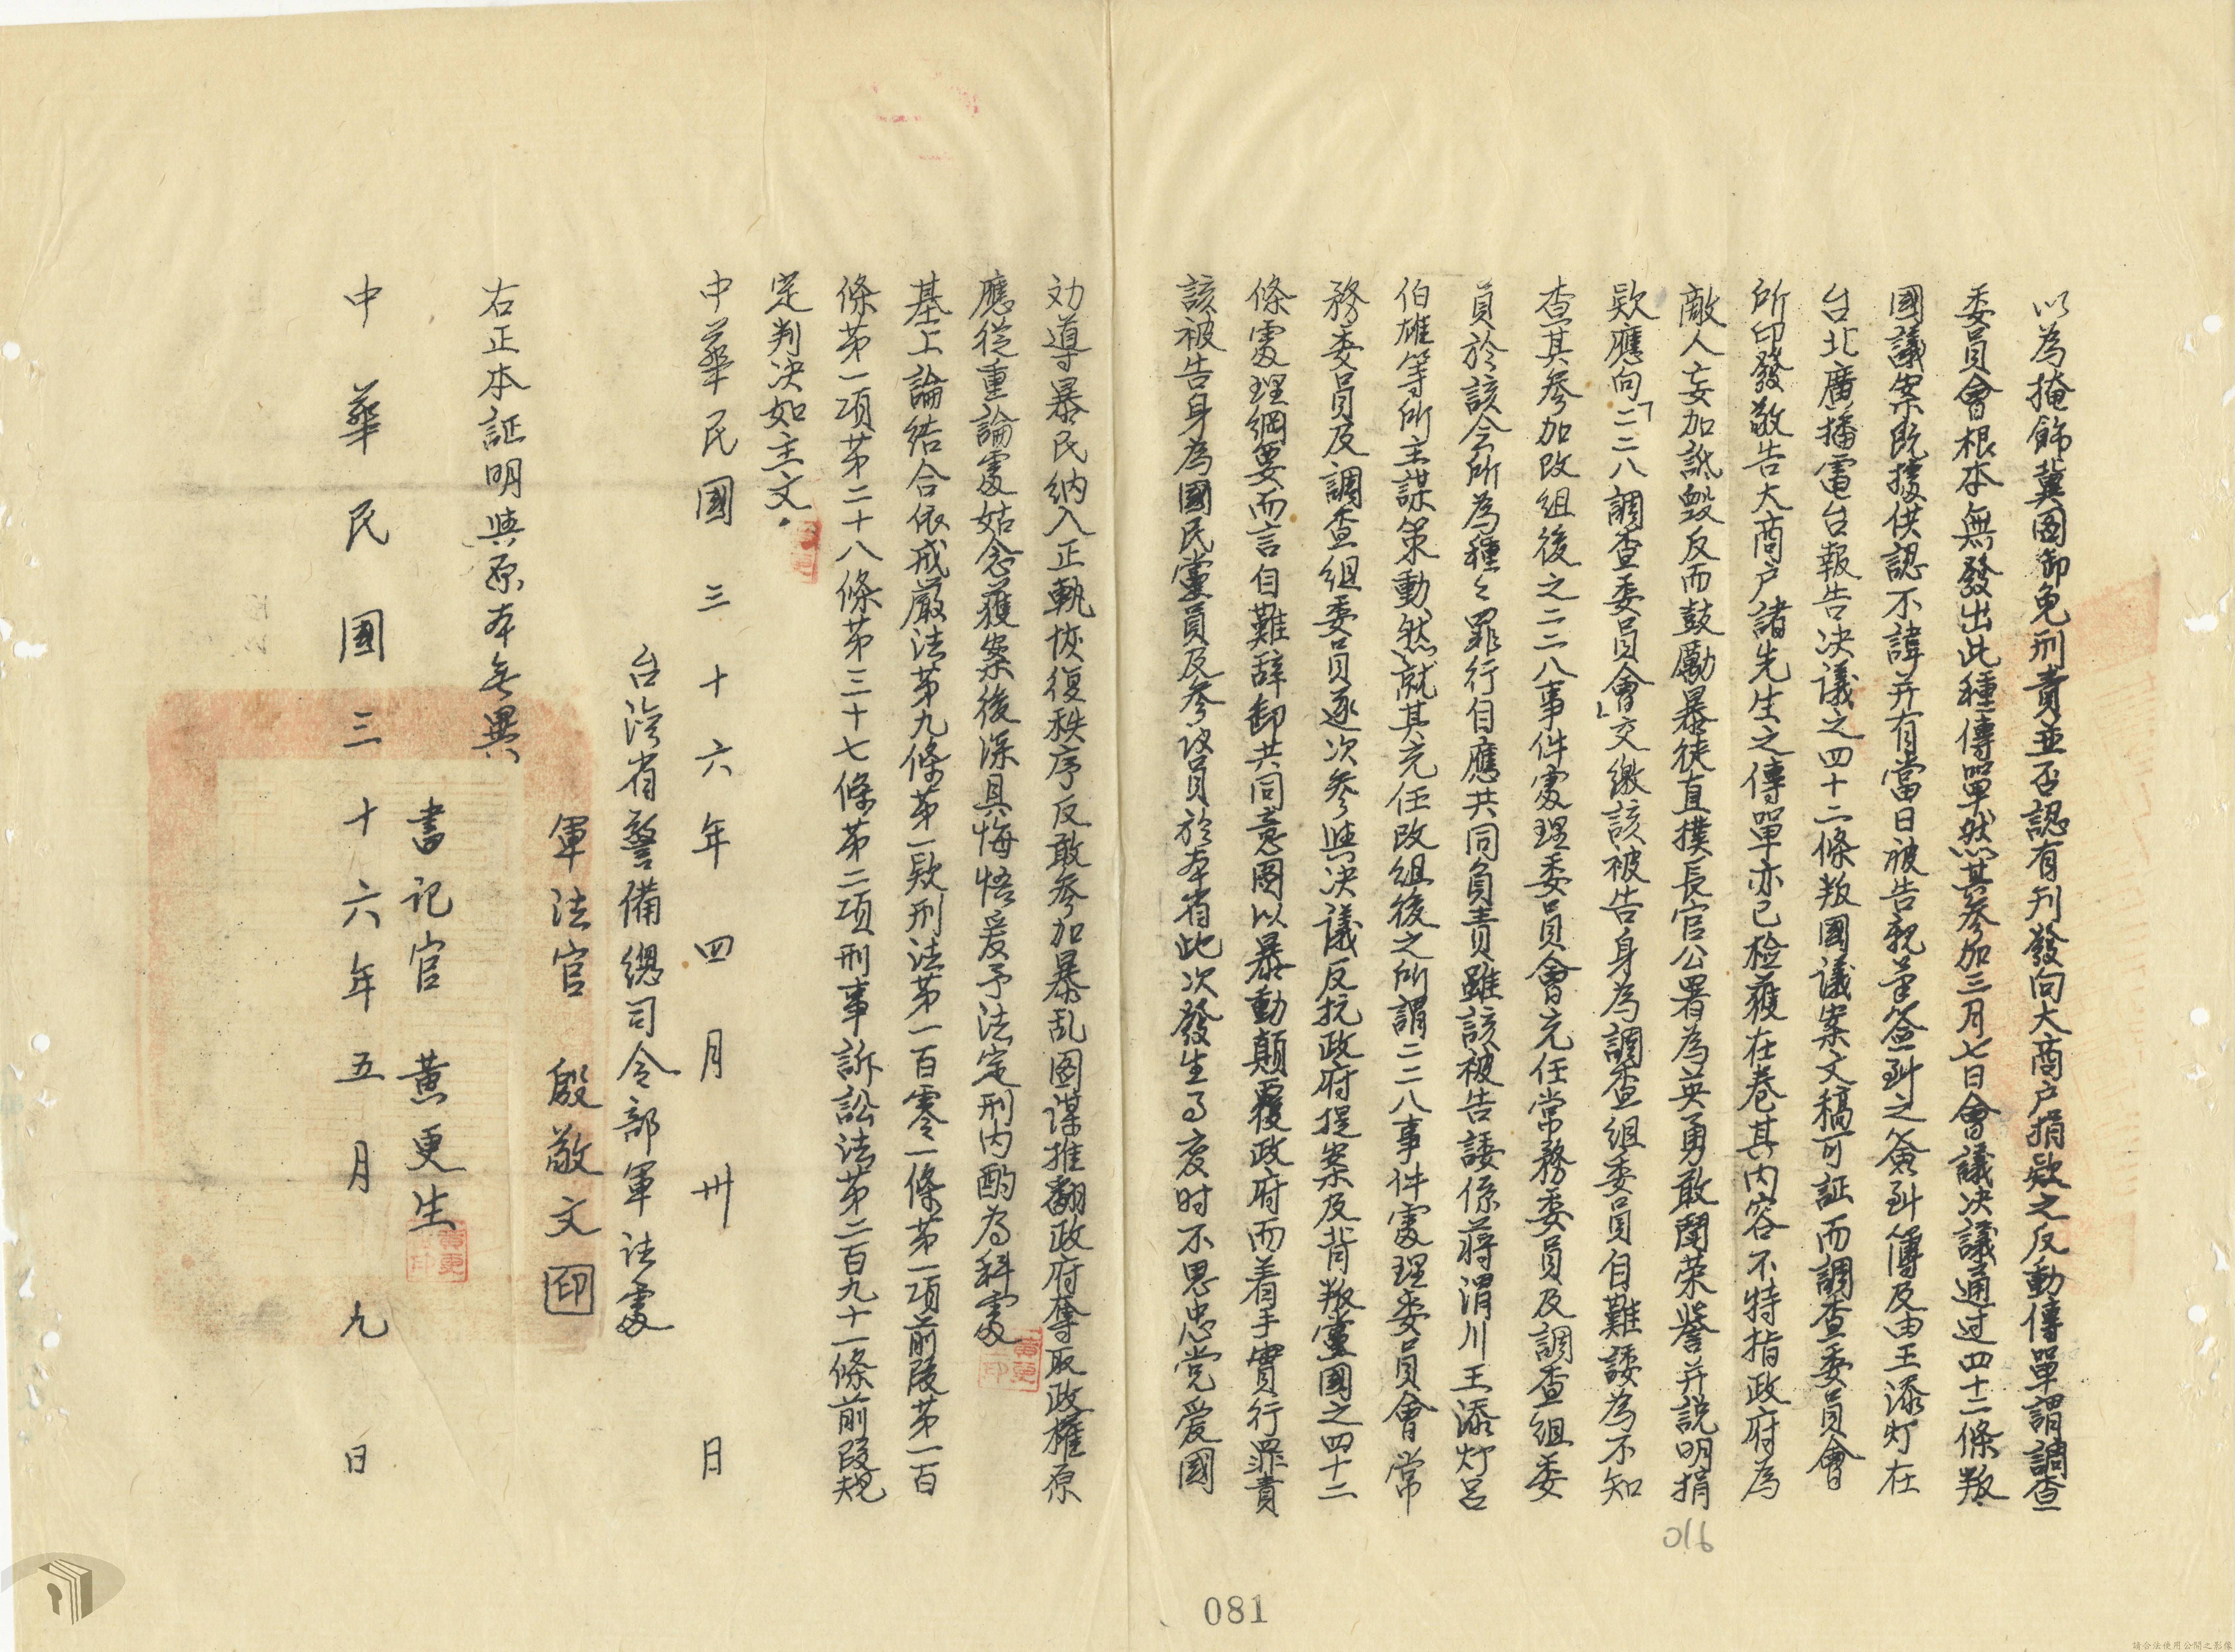 以為掩飾冀圖卸免刑責並否認有刊發向大商户捐欵之反動傳單謂調查
委員會根本無發出此種傳單然其參加三月七日會議決議通过四十二條叛
國議案既據供認不諱并有當日被告親筆簽到之簽到簿及由王添灯在
台北廣播電台報告決議之四十二條叛國議案文稿可証而調查委員會
所印發敬告大商户諸先生之傳單亦已检獲在卷其内容不特指政府為
敵人妄加詆毀反而鼓勵暴徒直撲長官公署為英勇敢鬪荣誉并説明捐
欵應向「二二八調查委員會」交繳該被告身為調查組委員自難諉為不知
查其參加改組後之二二八事件處理委員會充任常務委員及調查組委
員於該令所為種々罪行自應共同負責雖該被告諉係蔣渭川王添灯呂
伯雄等所主謀策動然就其充任改組後之所謂二二八事件處理委員會常
務委員及調查組委員逐次參與決議反抗政府提案及背叛黨國之四十二
條處理綱要而言自難辭卸共同意圖以暴動顛覆政府而着手實行罪責
該被告身為國民黨員及參議員於本省此次發生事変时不思忠党爱國
効導暴民納入正軌恢復秩序反敢參加暴乱图谋推翻政府奪取政權原
應從重論處姑念獲案後深具悔悟爰予法定刑内酌為科處
基上論結合依戒嚴法第九條第一欵刑法第一百零一條第一項前段第一百
條第一項第二十八條第三十七條第二項刑事訴訟法第二百九十一條前段規
定判決如主文.
中華民國三十六年四月卅日
台灣省警備總司令部軍法處
軍法官 殷敬文 印
右正本証明與原本無異
書記官 黄更生
中華民國三十六年五月九日
016
081
請合法使用公開之影像